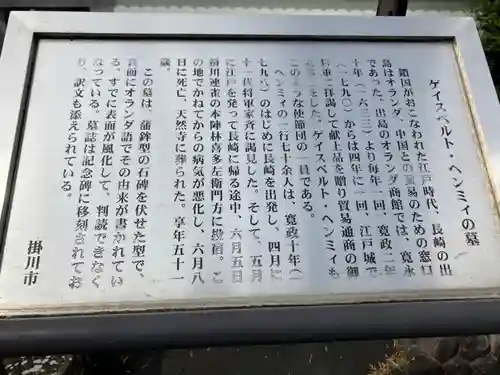 ゲイスベルト・ヘンミィの墓
鎖国がおこなわれた江戸時代、長崎の出
島はオランダ、中国との貿易のための窓口
であった。出島のオランダ商館では、寛永
十年（一六三三）より毎年一回、寛政二年
（一七九〇）からは四年に一回、江戸城で
将軍に拝謁して献上品を贈り貿易通商の御
礼をした。ゲイスベルト・ヘンミィも
このような使節団の一員である。
ヘンミィの一行七十余人は、寛政十年（一
七九八）のはじめに長崎を出発し、四月に
十一代将軍家斉に謁見した。そして、五月
に江戸を発って長崎に帰る途中、六月五日
掛川連雀の本陣林喜多左衛門方に投宿。こ
の地でかねてからの病気が悪化し、六月八
日に死亡、天然寺に葬られた。享年五十一
歳。
この墓は、蒲鉾型の石碑を伏せた型で、
表面にオランダ語でその由来が書かれてい
る。すでに表面が風化して、判読できなく
なっている。墓誌は記念碑に移刻されてお
り、訳文も添えられている。
掛川市